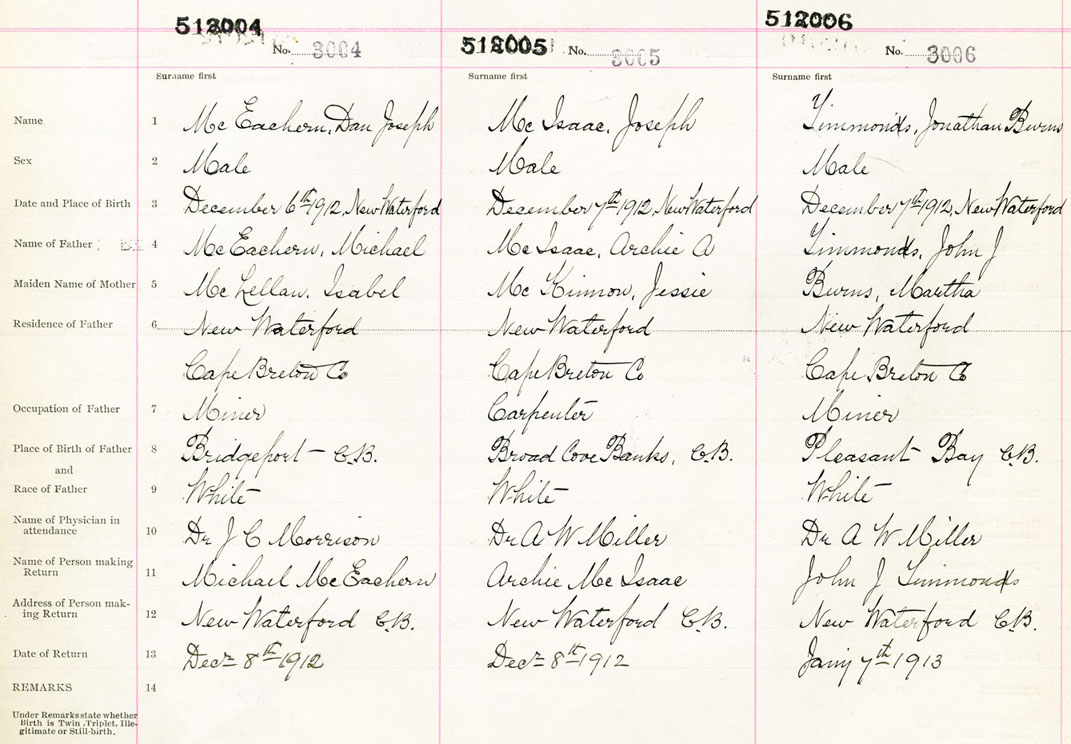 512004 512005 512006
No. 3004 No. 3005 No. 3006
Surname first Surname first Surname first
Name 1 McEachern, Dan Joseph McIsaac, Joseph Timmonds, Jonathan Burns
Sex 2 Male Male Male
Date and Place of Birth 3 December 6th 1912, New Waterford December 7th 1912, New Waterford December 7th 1912, New Waterford
Name of Father 4 McEachern, Michael McIsaac, Archie A Timmonds, John J
Maiden Name of Mother 5 McLellan, Isabel McKinnon, Jessie Burns, Martha
Residence of Father 6 New Waterford New Waterford New Waterford
Cape Breton Co Cape Breton Co Cape Breton Co
Occupation of Father 7 Miner Carpenter Miner
Place of Birth of Father 8 Bridgeport – C.B. Broad Cove Banks, C.B. Pleasant Bay C.B.
and
Race of Father 9 White White White
Name of Physician in
attendance 10 Dr J C Morrison Dr A W Miller Dr A W Miller
Name of Person making
Return 11 Michael McEachern Archie McIsaac John J Timmonds
Address of Person mak-
ing Return 12 New Waterford C.B. New Waterford C.B. New Waterford C.B.
Date of Return 13 Decr 8th 1912 Decr 8th 1912 Jany 7th 1913
REMARKS 14
Under Remarks state whether
Birth is Twin, Triplet, Ille-
gitimate or Still-birth.